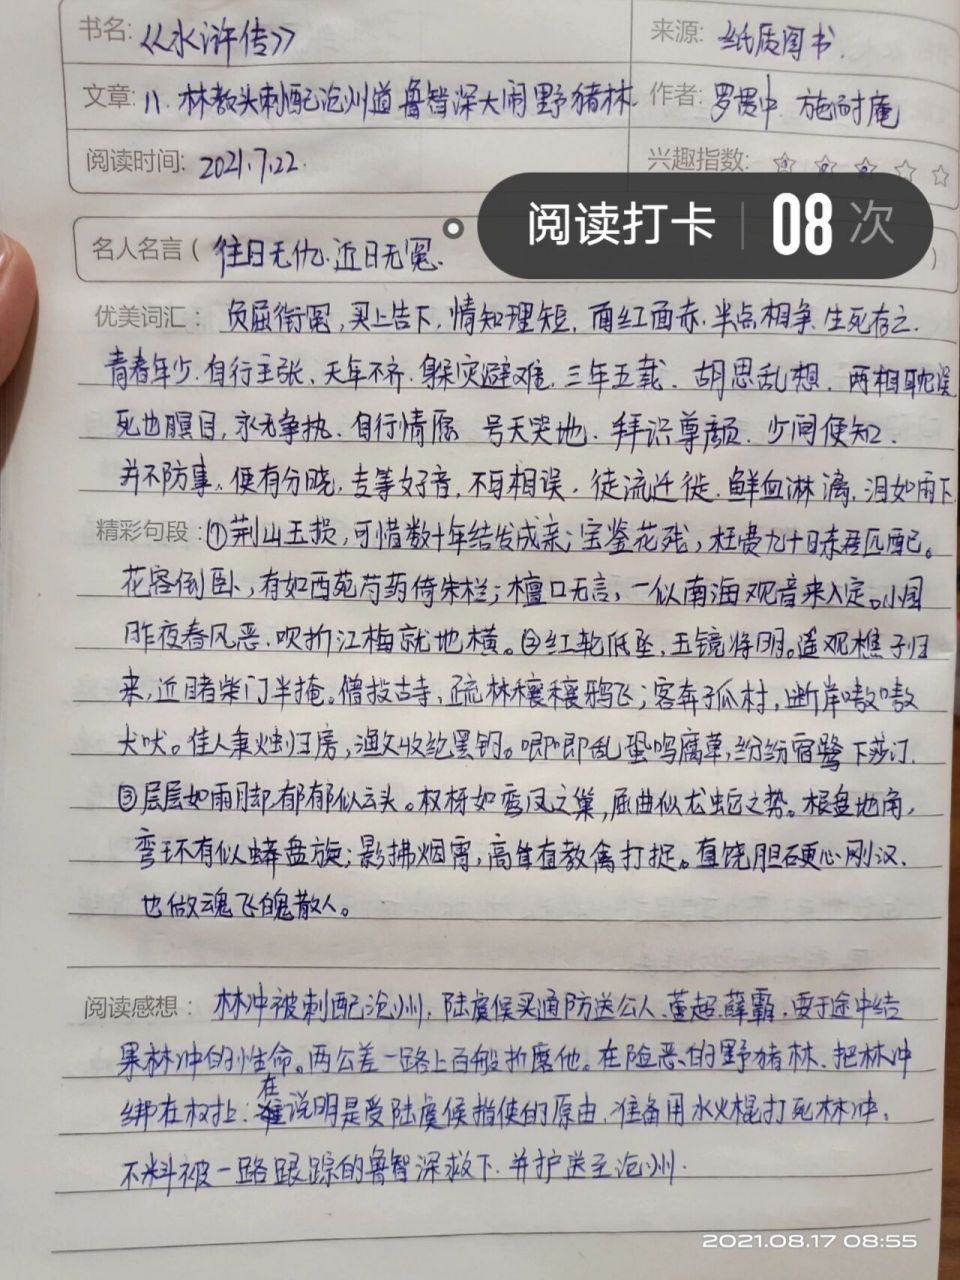 书名: 《水浒传》 来源: 纸质图书.
文章: 八. 林教头刺配沧州道 鲁智深大闹野猪林. 作者: 罗贯中. 施耐庵
阅读时间: 2021.7.22. 兴趣指数: ☆☆☆☆☆
阅读打卡 | 08 次
名人名言( 往日无仇.近日无冤. )
优美词汇: 负屈衔冤,买上告下,情知理短,面红面赤.半点相争.生死存亡.
青春年少.自行主张、天年不齐.躲灾避难.三年五载.胡思乱想.两相耽误
死也瞑目,永无争执.自行情愿 号天哭地.拜识尊颜.少间便知.
并不防事、便有分晓,专等好音,不可相误.徒流迁徙.鲜血淋漓,泪如雨下
精彩句段: ①荆山玉损,可惜数十年结发成亲;宝鉴花残,枉费九十日东君匹配。
花容倒卧,有如西苑芍药倚朱栏;檀口无言,一似南海观音来入定。小园
昨夜春风恶,吹折江梅就地横。②红轮低坠,玉镜将明。遥观樵子归
来,近睹柴门半掩。僧投古寺,疏林穰穰鸦飞;客奔孤村,断岸嗷嗷
犬吠。佳人秉烛归房,渔父收纶罢钓。唧唧乱蛩鸣腐草,纷纷宿鹭下莎汀.
③层层如雨脚,郁郁似云头。杈枒如鸾凤之巢,屈曲似龙蛇之势。根盘地角,
弯环有似蟒盘旋;影拂烟霄,高耸直教禽打捉。直饶胆硬心刚汉.
也做魂飞魄散人。
阅读感想: 林冲被刺配沧州,陆虞候买通防送公人.董超.薛霸,要于途中结
果林冲的性命。两公差一路上百般折磨他。在险恶的野猪林.把林冲
绑在杈上;在说明是受陆虞候指使的原由.准备用水火棍打死林冲.
不料被一路跟踪的鲁智深救下.并护送至沧州.
2021.08.17 08:55